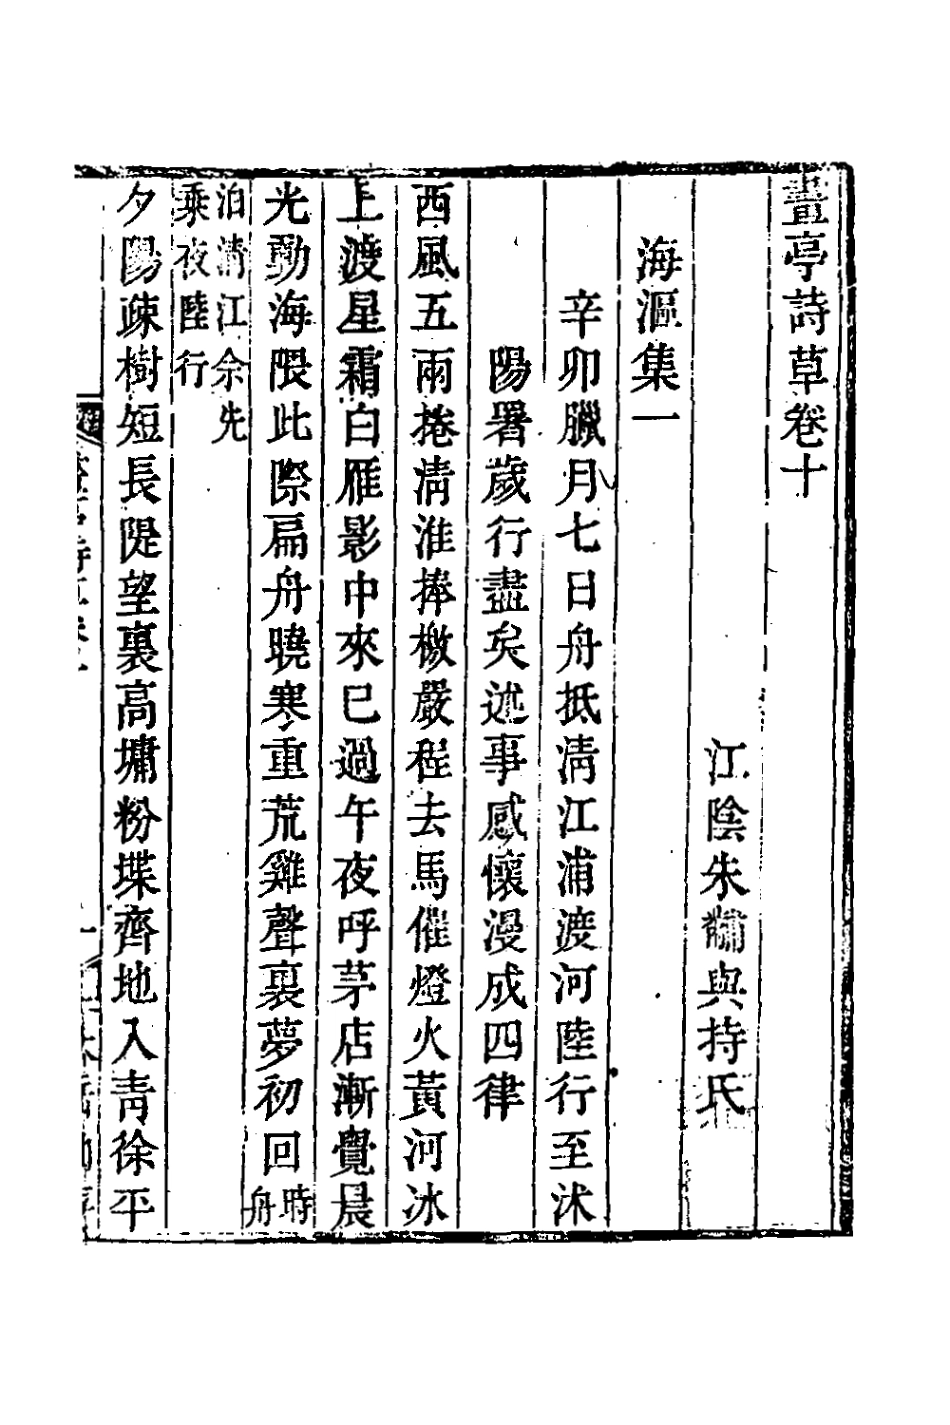 畫亭詩草卷十
江陰朱黼與持氏
海漚集一
辛卯臘月七日舟抵清江浦渡河陸行至沭
陽署歲行盡矣述事感懷漫成四律
西風五兩捲清淮捧檄嚴程去馬催燈火黃河冰
上渡星霜白雁影中來已過午夜呼茅店漸覺晨
光動海隈此際扁舟曉寒重荒雞聲裏夢初回時舟
泊清江余先
乘夜陸行
夕陽疎樹短長隄望裏高墉粉堞齊地入青徐平